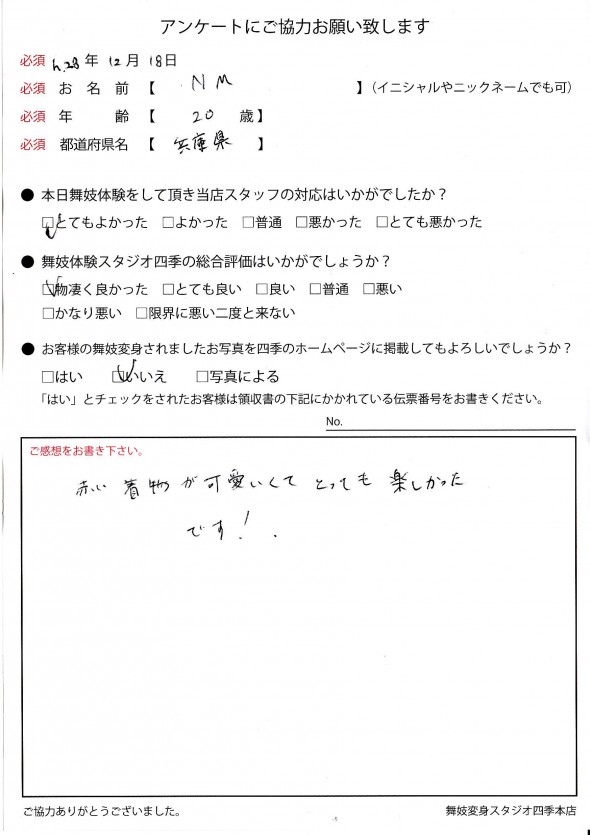 アンケートにご協力お願い致します
必須 h.28年 12月 18日
必須 お 名 前 【 NM 】(イニシャルやニックネームでも可)
必須 年 齢 【 20 歳】
必須 都道府県名 【 兵庫県 】
● 本日舞妓体験をして頂き当店スタッフの対応はいかがでしたか?
□とてもよかった □よかった □普通 □悪かった □とても悪かった
● 舞妓体験スタジオ四季の総合評価はいかがでしょうか?
□物凄く良かった □とても良い □良い □普通 □悪い
□かなり悪い □限界に悪い二度と来ない
● お客様の舞妓変身されましたお写真を四季のホームページに掲載してもよろしいでしょうか?
□はい □いいえ □写真による
「はい」とチェックをされたお客様は領収書の下記にかかれている伝票番号をお書きください。
No.
ご感想をお書き下さい。
赤い着物が可愛いくてとっても楽しかった
です!.
ご協力ありがとうございました。 舞妓変身スタジオ四季本店